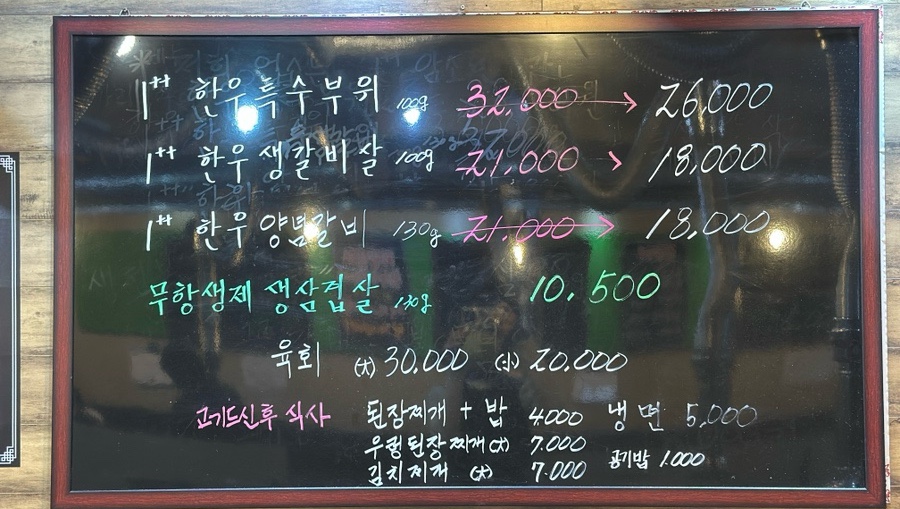 1++ 한우 특수부위 100g 32,000 → 26,000
1++ 한우 생갈비살 100g 21,000 → 18,000
1++ 한우 양념갈비 130g 21,000 → 18,000
무항생제 생삼겹살 130g 10.500
육회 (大) 30.000 (小) 20.000
고기드신후 식사 된장찌개 + 밥 4.000 냉면 5,000
우렁된장찌개(大) 7.000 공기밥 1.000
김치찌개 (大) 7.000